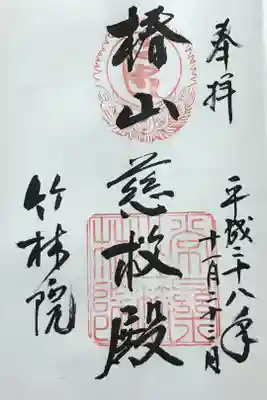 奉拝
平成二十八年
十一月二十三日
椿山
慈救殿
竹林院